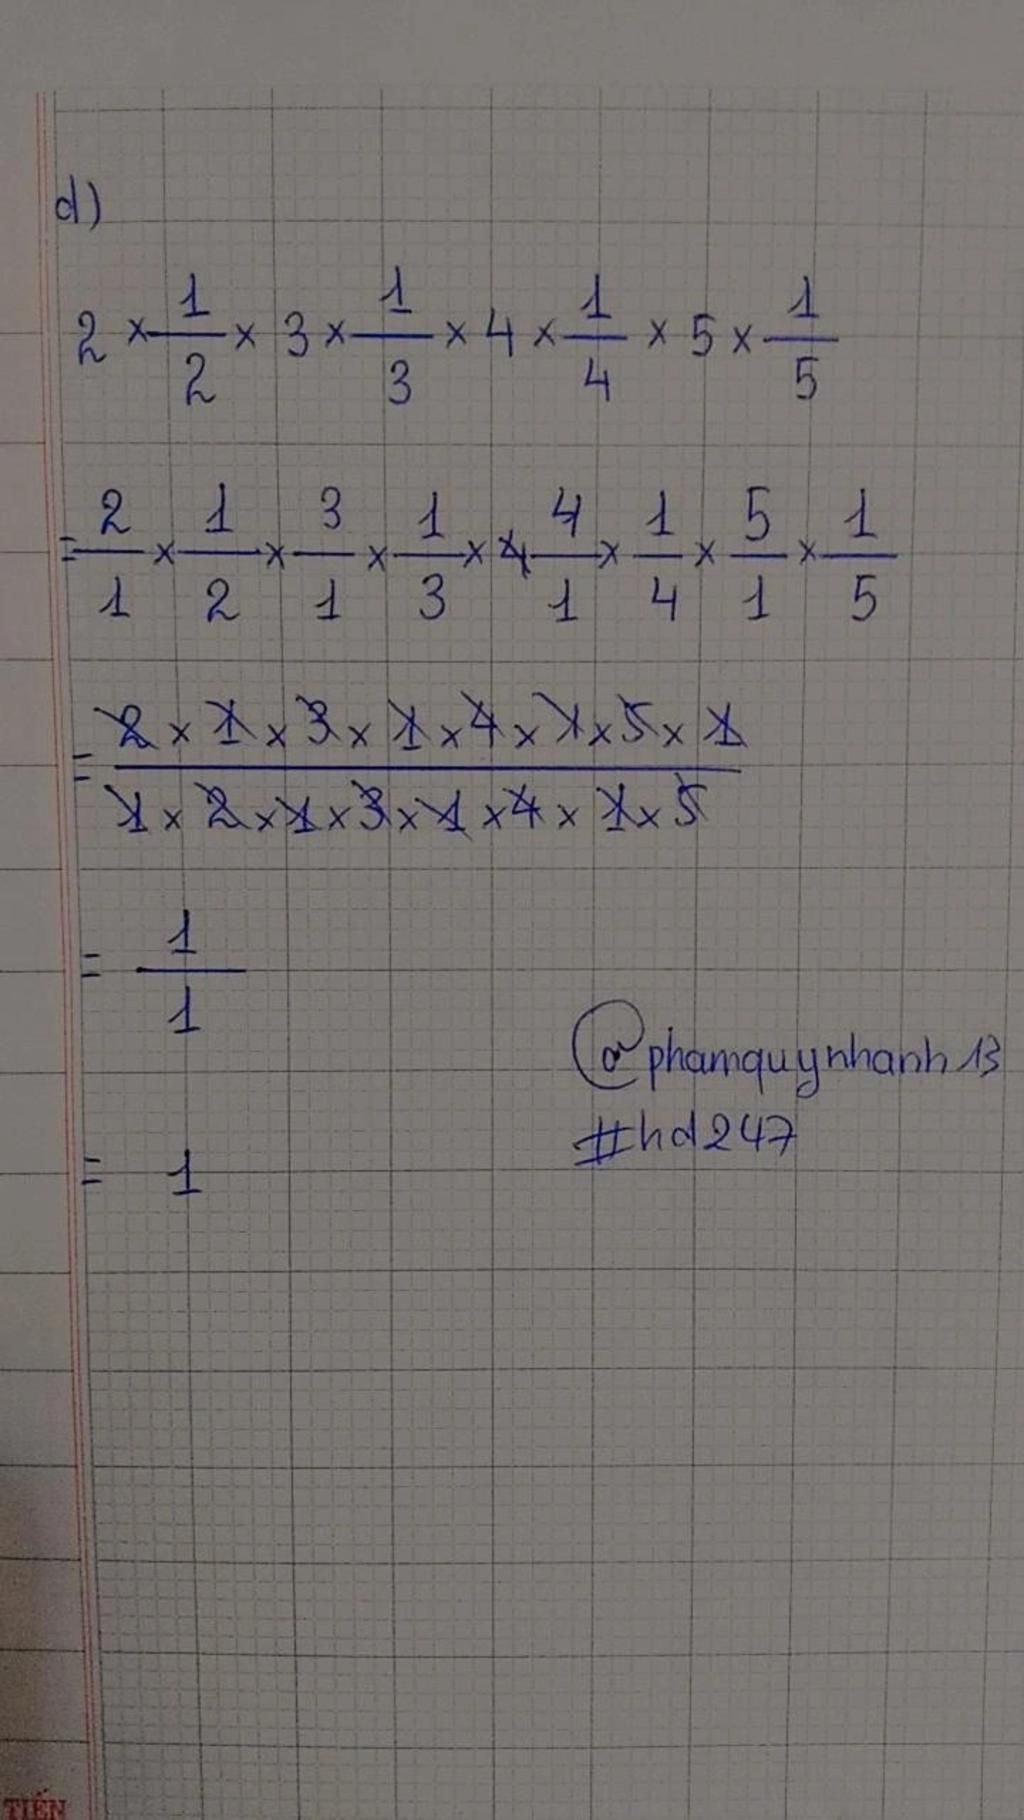 d)
2 × 1/2 × 3 × 1/3 × 4 × 1/4 × 5 × 1/5
= 2/1 × 1/2 × 3/1 × 1/3 × 4/1 × 1/4 × 5/1 × 1/5
= (2 × 1 × 3 × 1 × 4 × 1 × 5 × 1)/(1 × 2 × 1 × 3 × 1 × 4 × 1 × 5)
= 1/1
@phamquynhanh13
#hd247
= 1
TIẾN